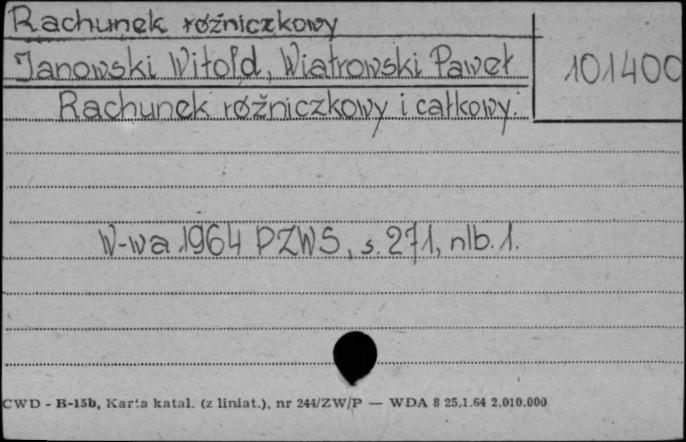 Rachunek różniczkowy
Janowski Witold, Wiatrowski Paweł
101400
Rachunek różniczkowy i całkowy.
W-wa 1964 PZWS, s. 271, nlb. 1.
CWD - B-15b, Karta katal. (z liniat.), nr 244/ZW/P — WDA 8 25.1.64 2.010.000